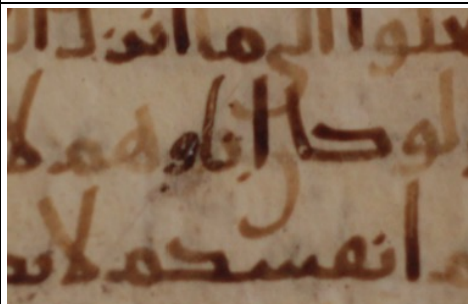 تعلوا الى ما انزل
لو كان اباوهم لا
انفسكم لا